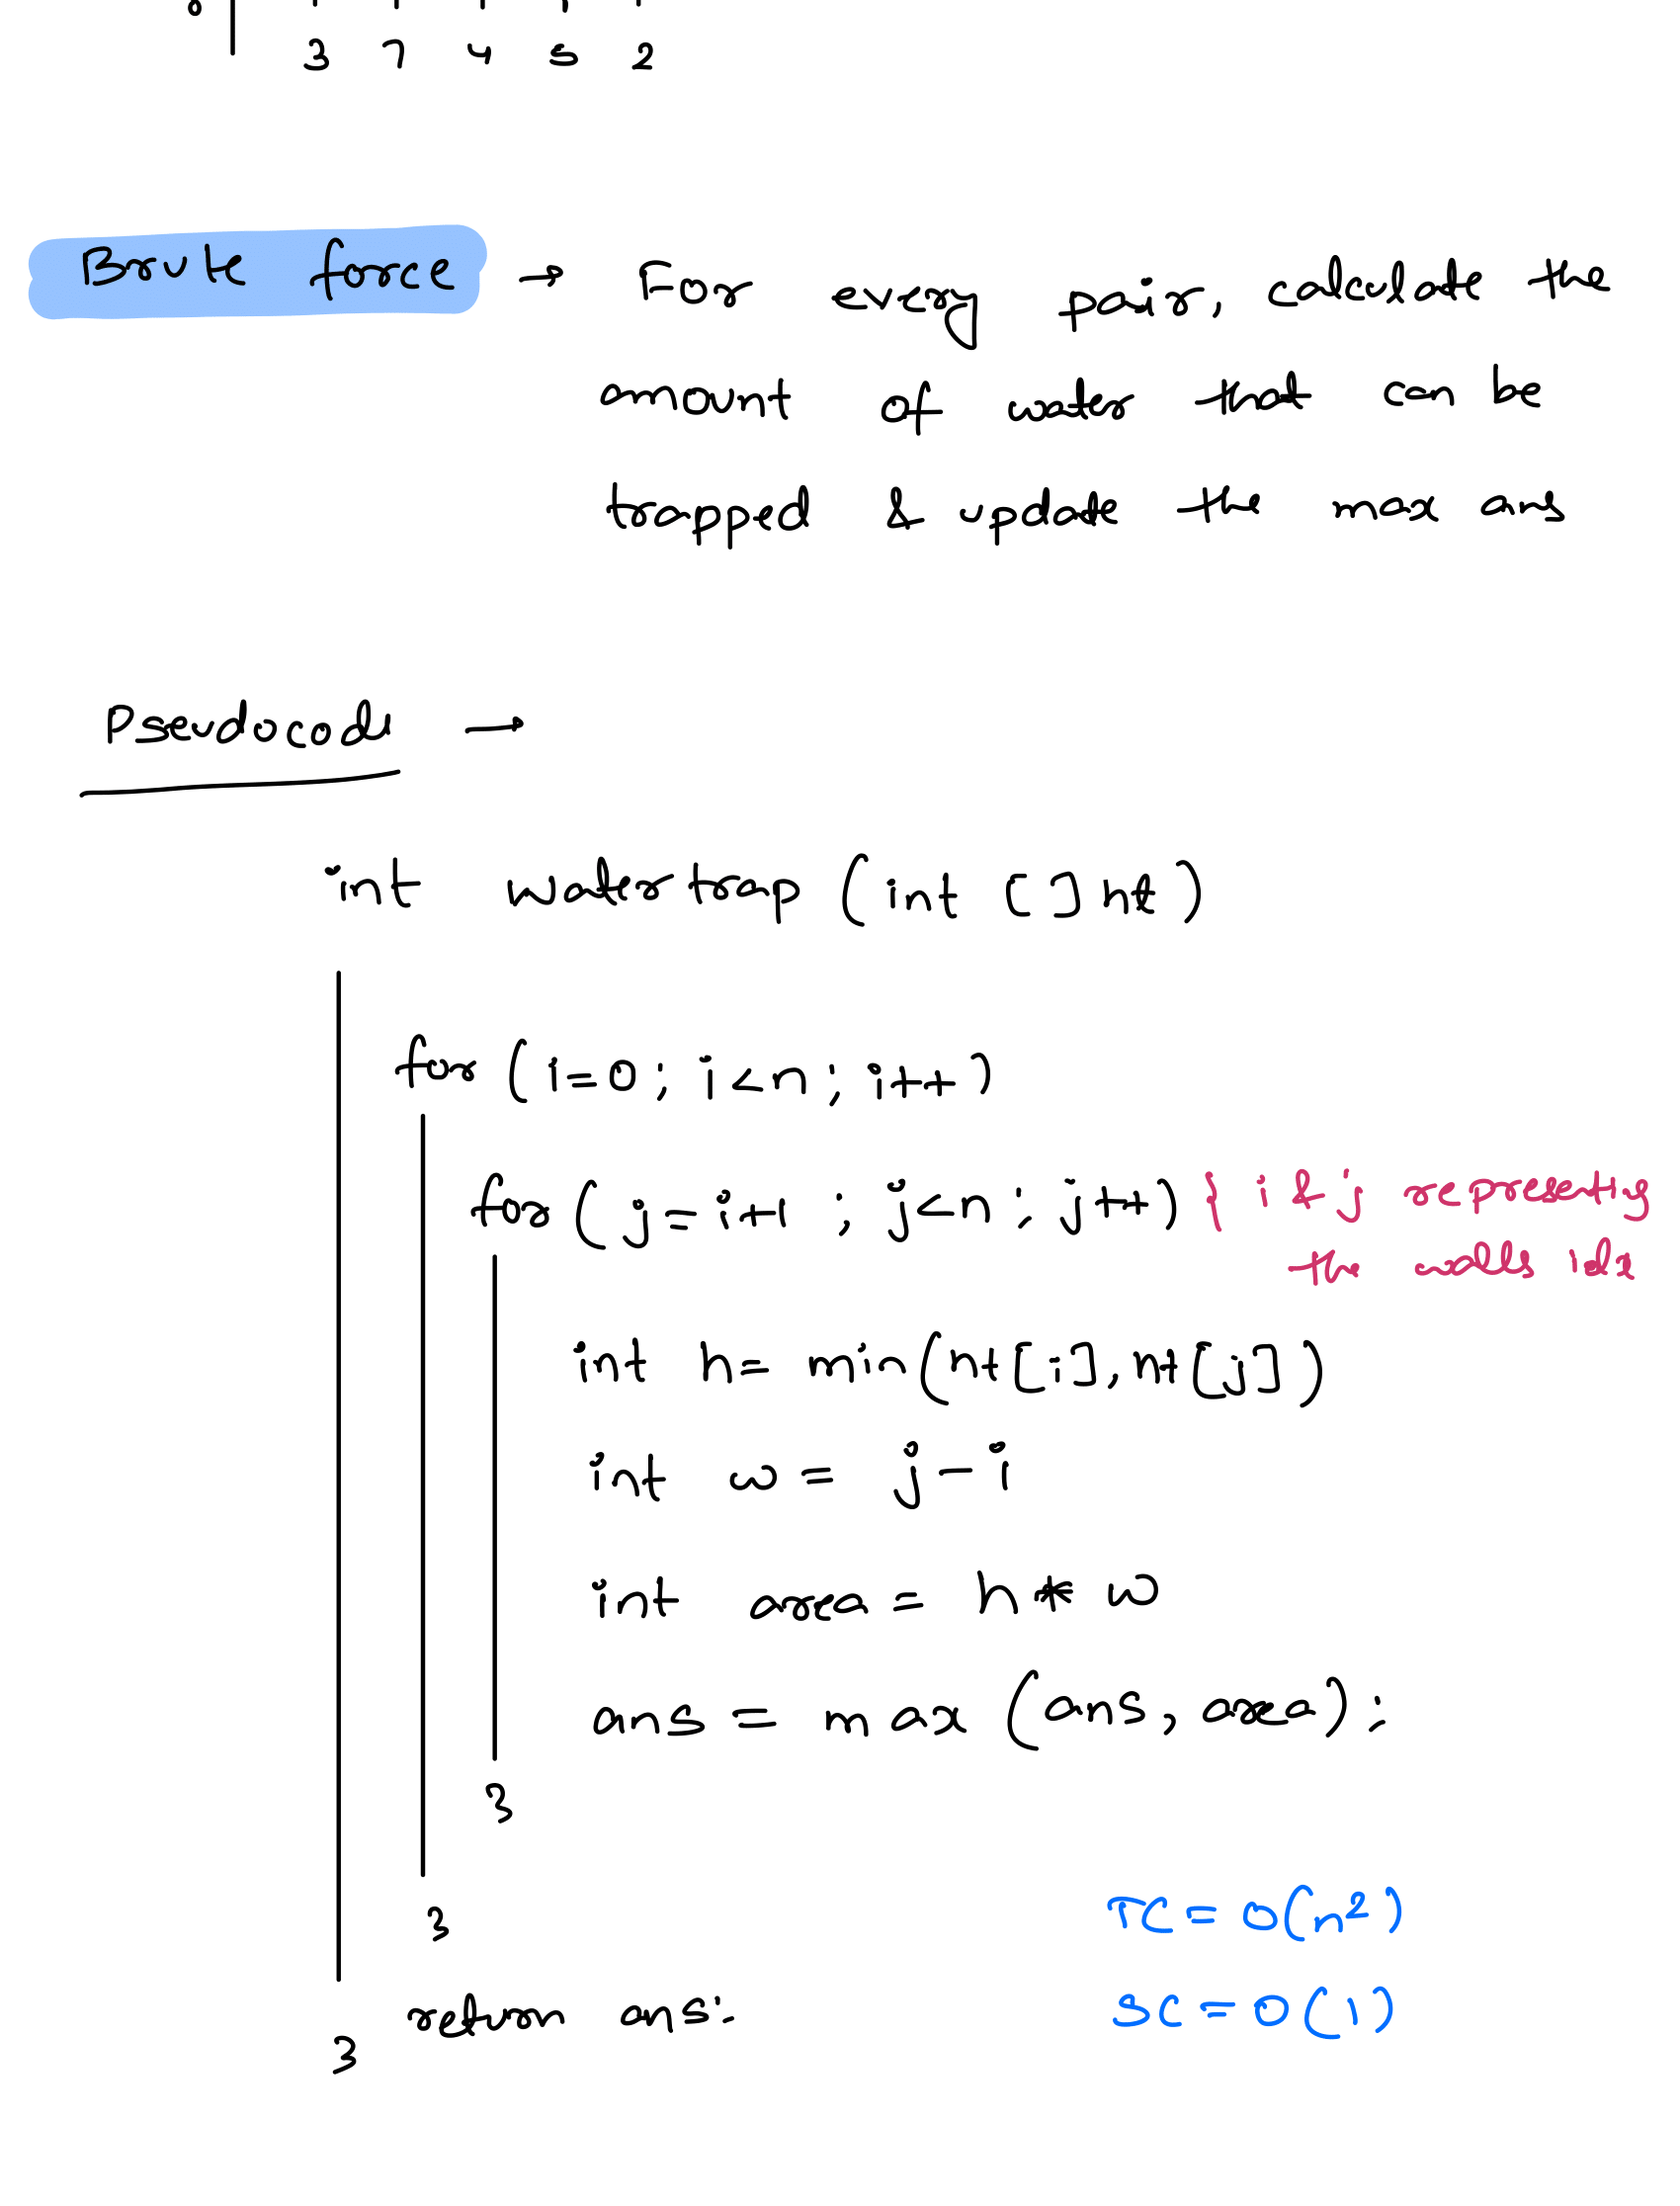 0
3 7 4 5 2
Brute force → For every pair, calculate the
amount of water that can be
trapped & update the max ans
Pseudocode →
int watertrap (int [] ht)
for (i=0; i<n; i++)
for (j=i+1 ; j<n; j++) { i & j representing
the walls idx
int h= min(ht[i], ht[j])
int w = j-i
int area = h * w
ans = max (ans, area);
}
}
TC = O(n²)
return ans;
SC = O(1)
}